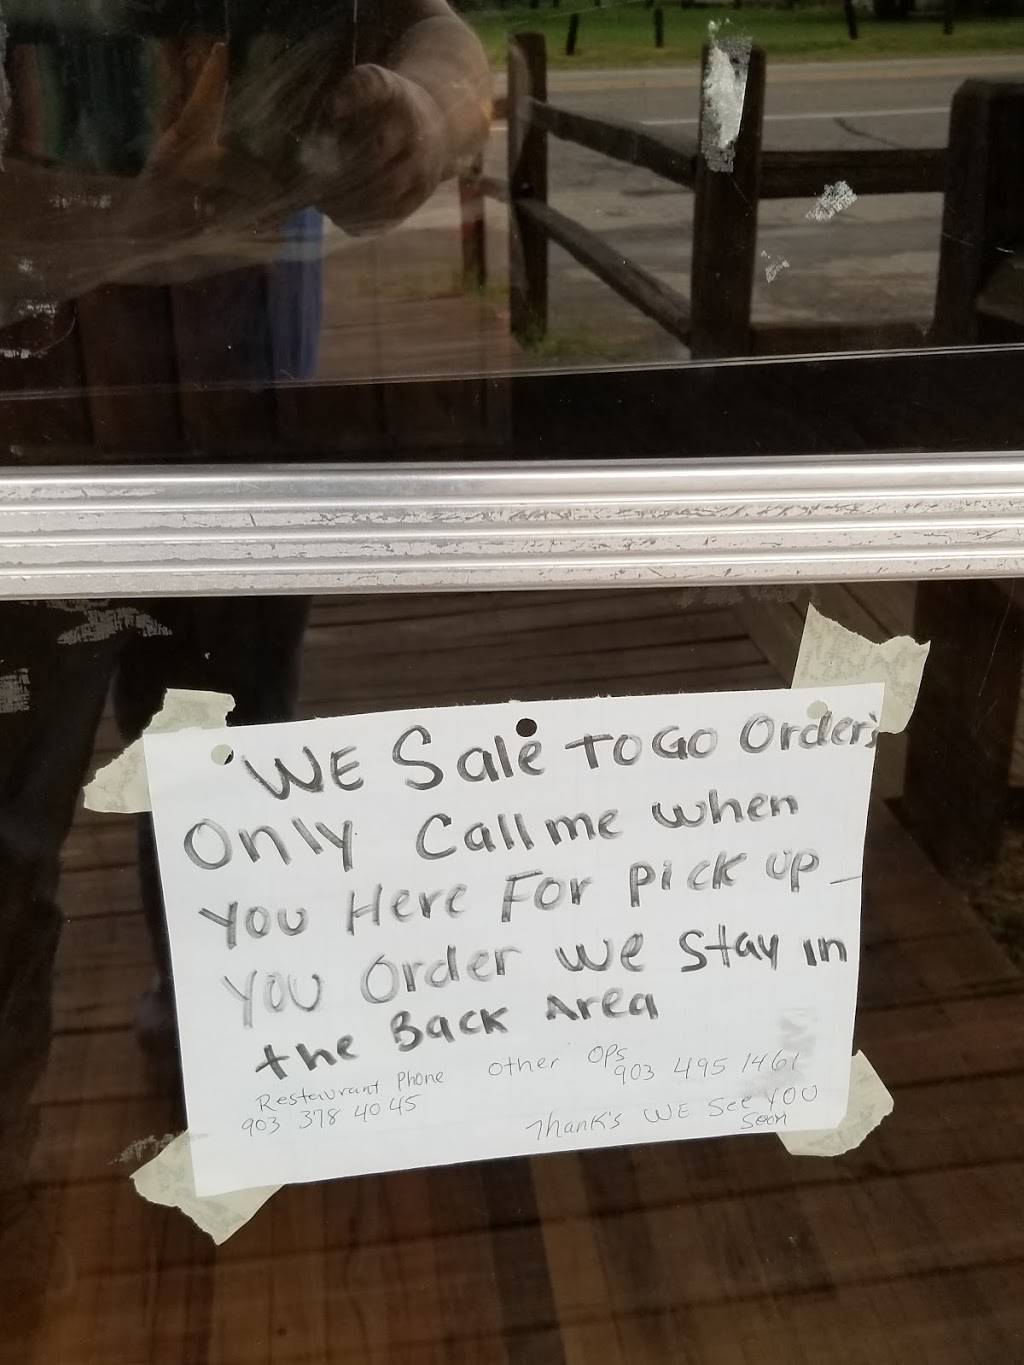 WE Sale TO GO Order's
Only Call me when
you Here For pick up
you Order we stay in
the Back Area
Restaurant Phone
903 378 40 45
other ops
903 495 1461
Thank's WE See YOU
Soon